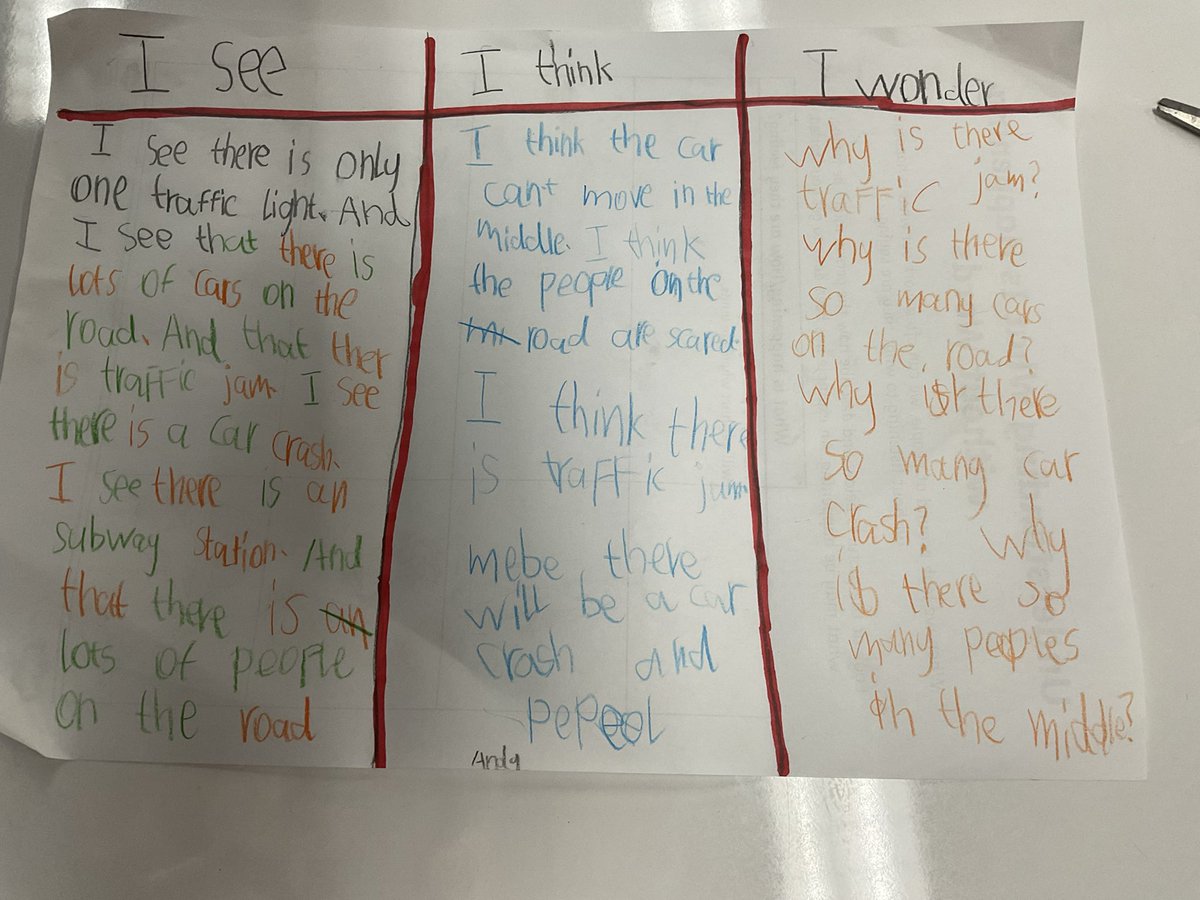 I see
I see there is only
one traffic light. And
I see that there is
lots of cars on the
road. And that ther
is traffic jam. I see
there is a car crash.
I see there is an
subway station. And
that there is an
lots of people
on the road
I think
I think the car
can't move in the
middle. I think
the people on the
road are scared.
I think there
is traffic jam
mebe there
will be a car
crash and
pepeol
Andy
I wonder
why is there
traffic jam?
why is there
so many cars
on the road?
why is there
so many car
crash? why
is there so
many peoples
in the middle?